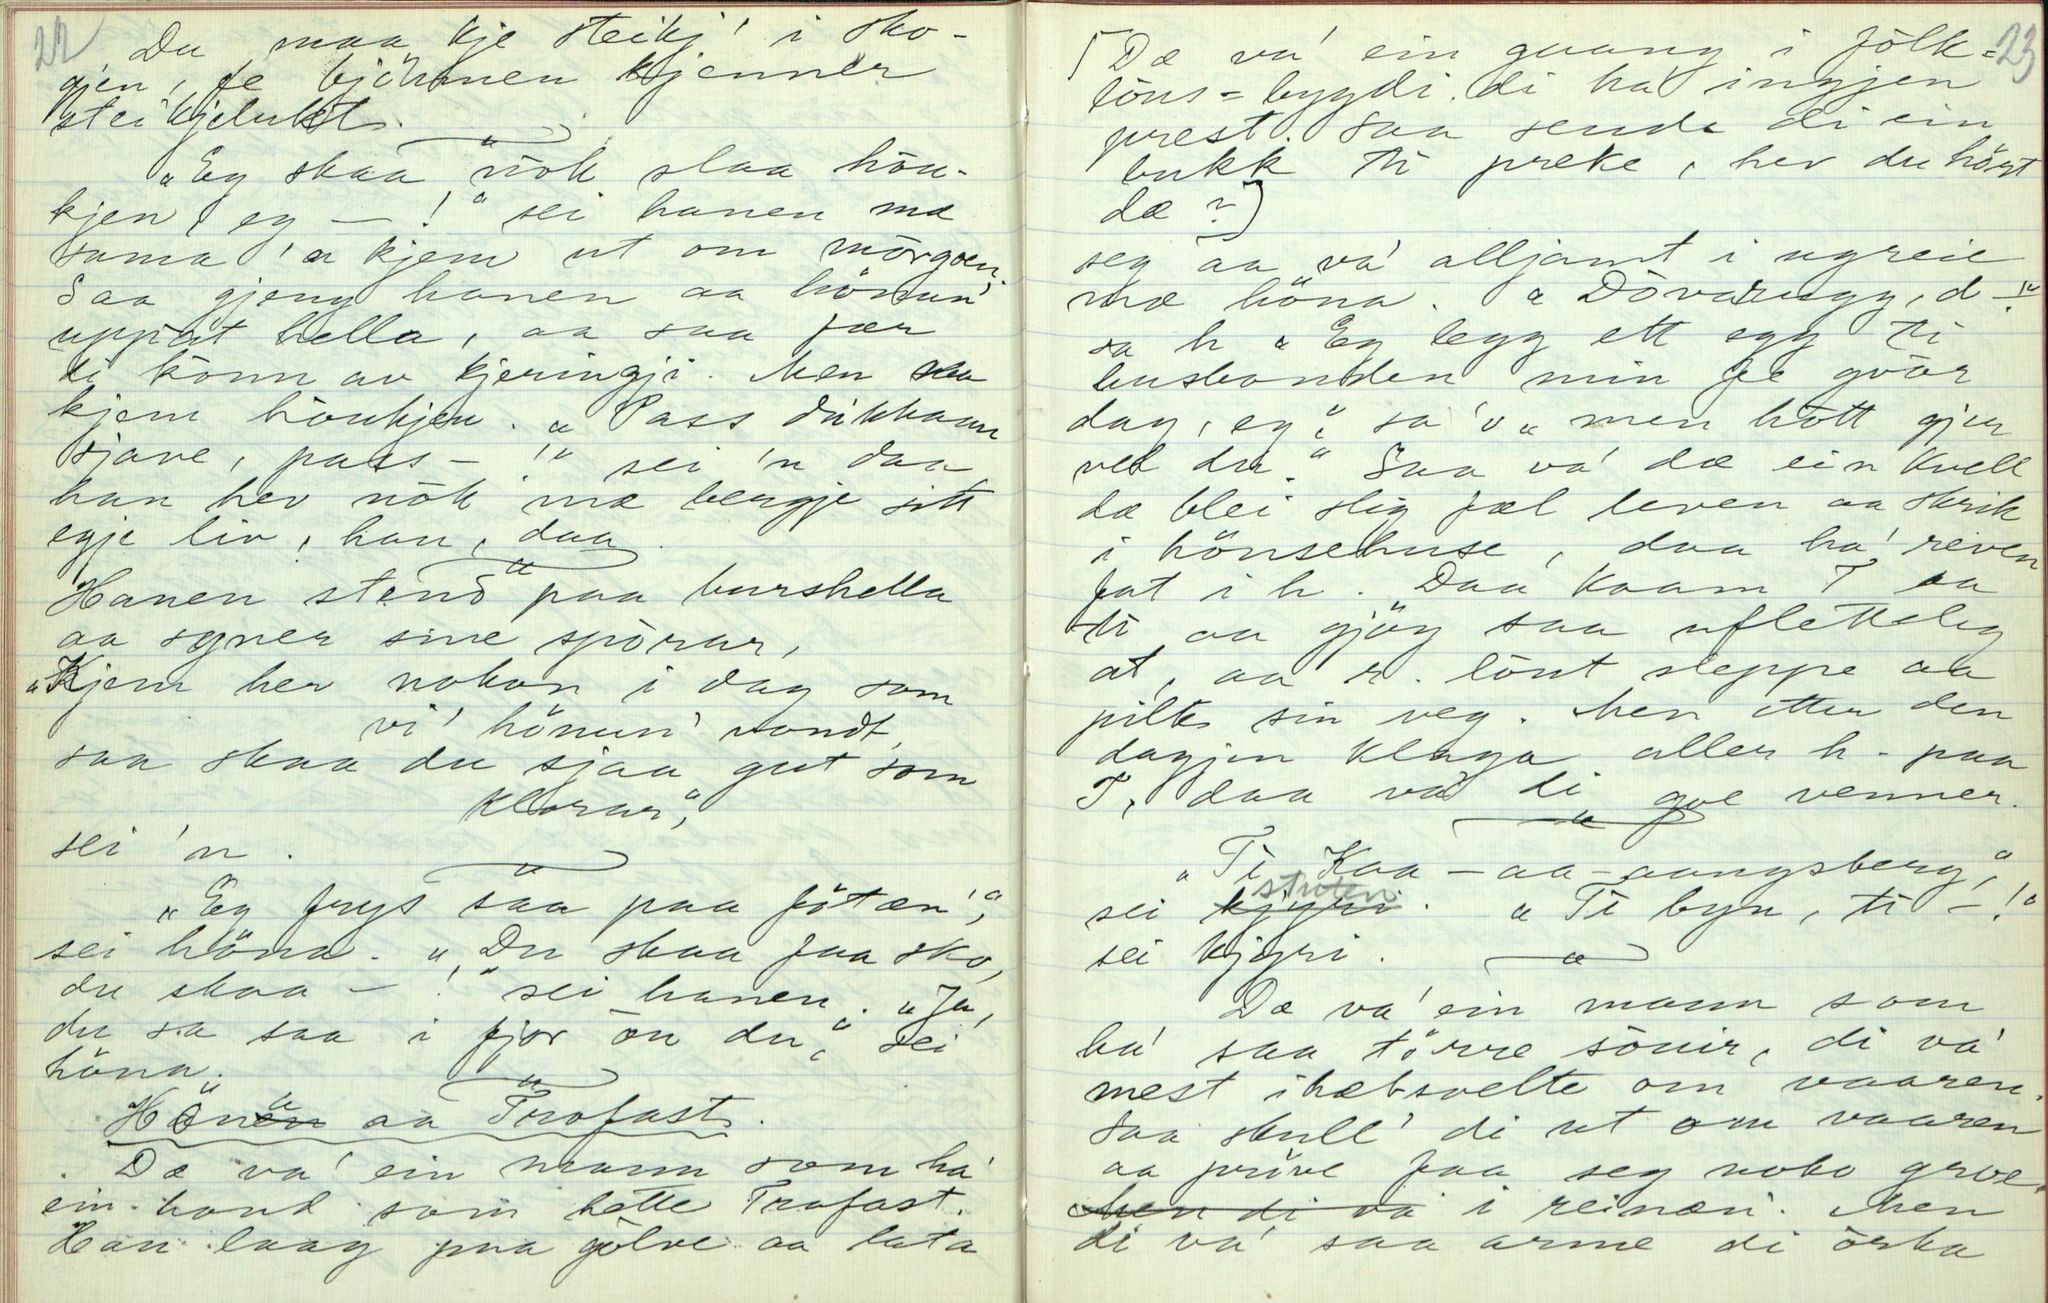 22
Du maa kje steikj' i sko-
gjen, fe bjönnen kjenner
steikjelukt.
"Eg skaa nòk slaa hòu-
kjen, eg - !" sei hanen mæ
sama 'n kjem ut om mòrgoen,
Saa gjeng hanen aa hönun'
uppaat hella, aa saa fær
di kònn av kjeringji. Men saa
kjem hòukjen. "Pass dikkaan
sjave, pass - !" sei 'n daa
han hev nòk mæ bergje sitt
egje liv, han, daa.
Hanen stend paa burshella
aa syner sine spòrar,
"Kjem her nokon i dag som
vi' hönun' vondt,
saa skaa du sjaa gut som
klorar,"
sei 'n.
"Eg frys saa paa fötæn',"
sei höna. "Du skaa faa sko,
du skaa - !" sei hanen. "Ja,
du sa saa i fjor òu du," sei
höna.
Höna aa Trofast.
Dæ va' ein mann som ha'
ein hond som hette Trofast.
Han laag paa gòlve aa lata
23
[Dæ va' ein gaang i fòlk-
löus-bygdi. di ha' ingjen
prest. Saa sende di ein
bukk ti preke, hev du höyrt
dæ?]
seg aa va' alljamt i ugreie
mæ höna. "Dòvarugg, d -!"
sa h "Eg legg ett egg ti
husbonden min fe gvòr
dag, eg," sa 'o "men hòtt gjer
vel du." Saa va' dæ ein kvell
dæ blei slig fæl leven aa skrik
i hönsehuse, daa ha' reven
fat i h. Daa kaam T aa
ti aa gjöy saa ufletteleg
at, aa r. lòut sleppe aa
pilte sin veg. Men etter den
dagjen klaga aller h. paa
T, daa va' di goe venner.
"Ti Kaa-aa-aangsberg,"
sei stuten. "Ti byn, ti -!"
sei kjyri.
Dæ va' ein mann som
ha' saa törre söuir, di va'
mest ihælsvelte om vaaren.
Saa skull' di ut om vaaren
aa pröve faa seg noko groe.
Men di va' i reinæn. Men
di va' saa arme di òrka